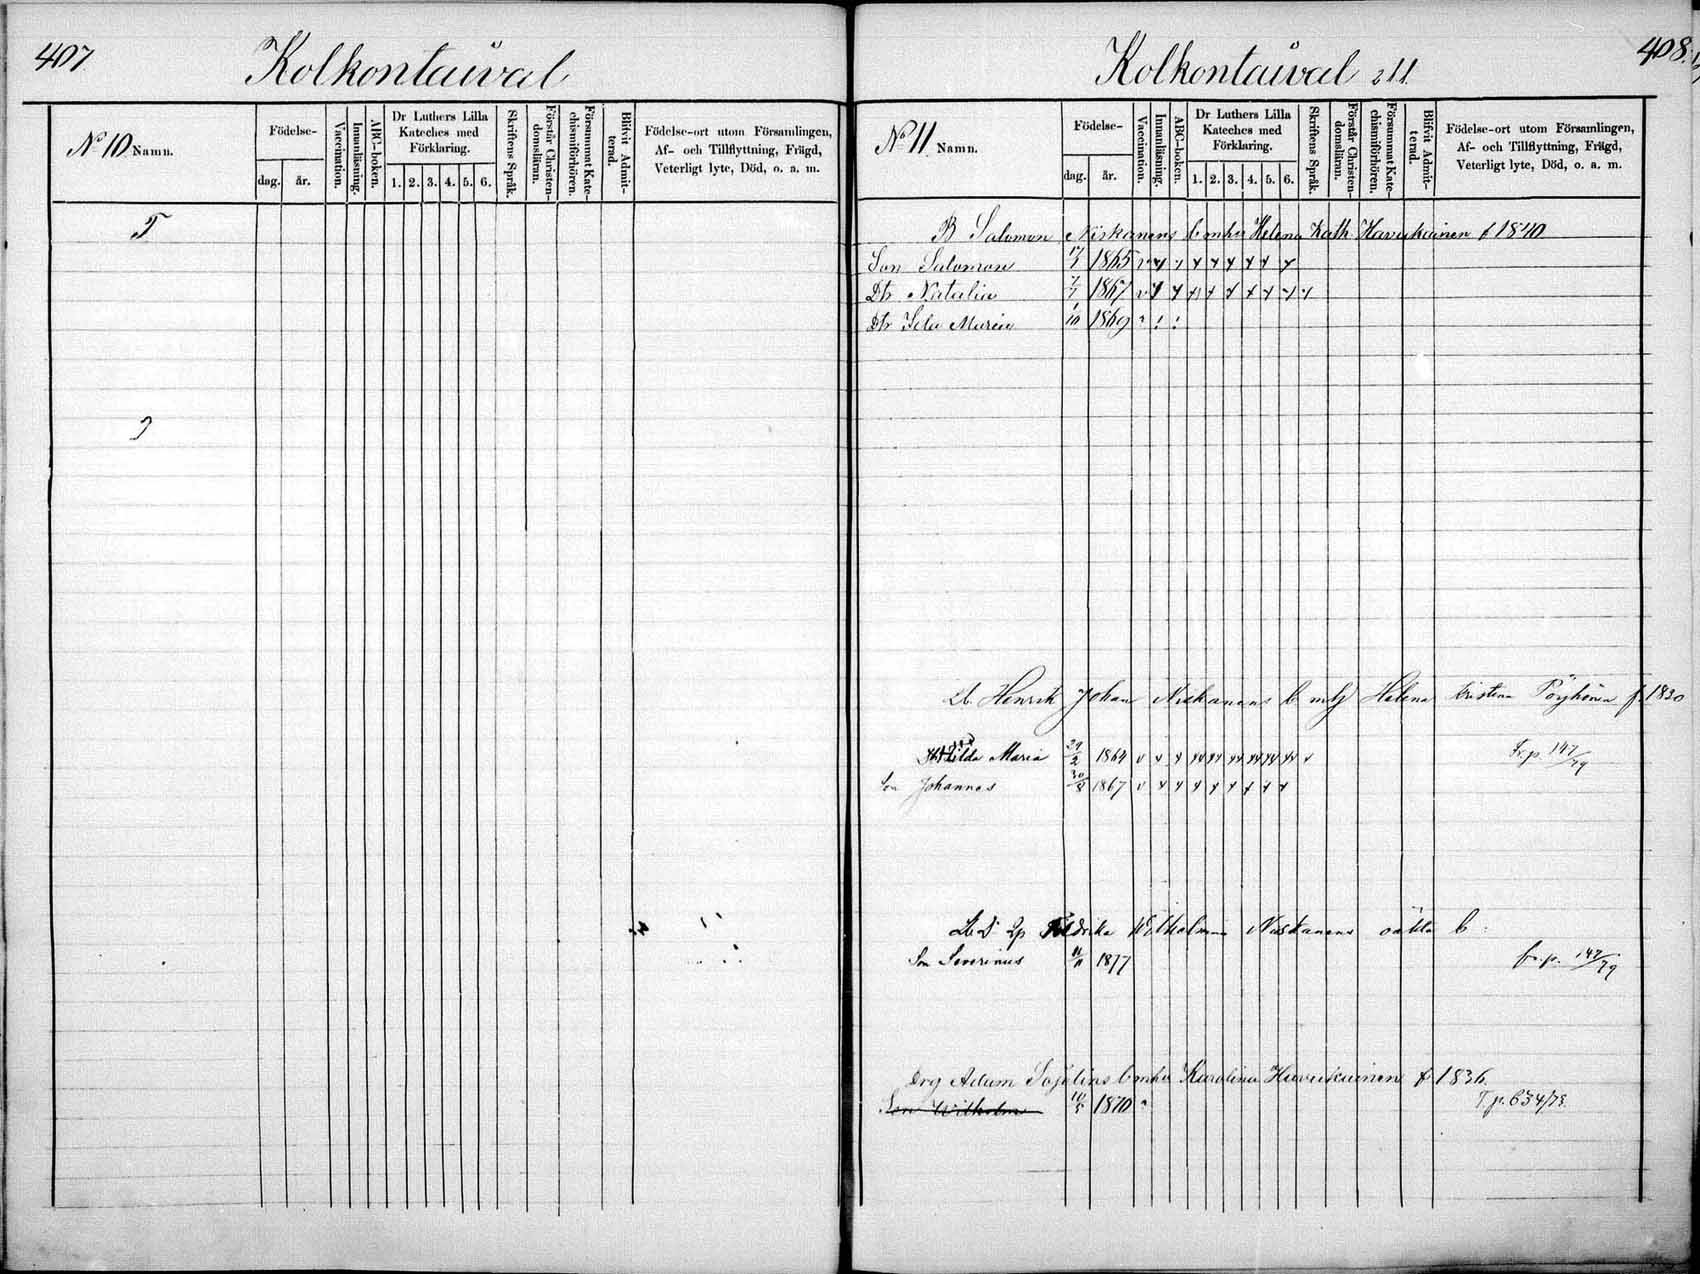 407
Kolkontaival
No 10 Namn.
Födelse-
dag.
år.
Vaccination.
Innanläsning.
ABC-boken.
Dr Luthers Lilla
Kateches med
Förklaring.
1. 2. 3. 4. 5. 6.
Skriftens Språk.
Förstår Christen-
domsläran.
Försummat Kate-
chismiförhören.
Blifvit Admit-
terad.
Födelse-ort utom Församlingen,
Af- och Tillflyttning, Frägd,
Veterligt lyte, Död, o. a. m.
Kolkontaival 211.
408.
No 11 Namn.
Födelse-
dag.
år.
Vaccination.
Innanläsning.
ABC-boken.
Dr Luthers Lilla
Kateches med
Förklaring.
1. 2. 3. 4. 5. 6.
Skriftens Språk.
Förstår Christen-
domsläran.
Försummat Kate-
chismiförhören.
Blifvit Admit-
terad.
Födelse-ort utom Församlingen,
Af- och Tillflyttning, Frägd,
Veterligt lyte, Död, o. a. m.
B Salomon Niskanens b mhu Helena Kath Havukainen f 1840
Son Salomon 1865
Dtr Natalia 1867
Dtr Ida Maria 1/10 1869
Henrik Johan Niskanens b mh Helena Kristina Pöyhönen f. 1830
Hilda Maria 29/2 1864 Fr. p 147/79
Son Johannes 30/8 1867
Wilhelmina Niskanens oäkta b
Son Severinus 11/11 1877 fr. p. 147/79
Drg Adam Sojelins b mhu Karolina Havukainen f 1836.
Son Wilhelm 10/5 1870 T. p. 634/73.